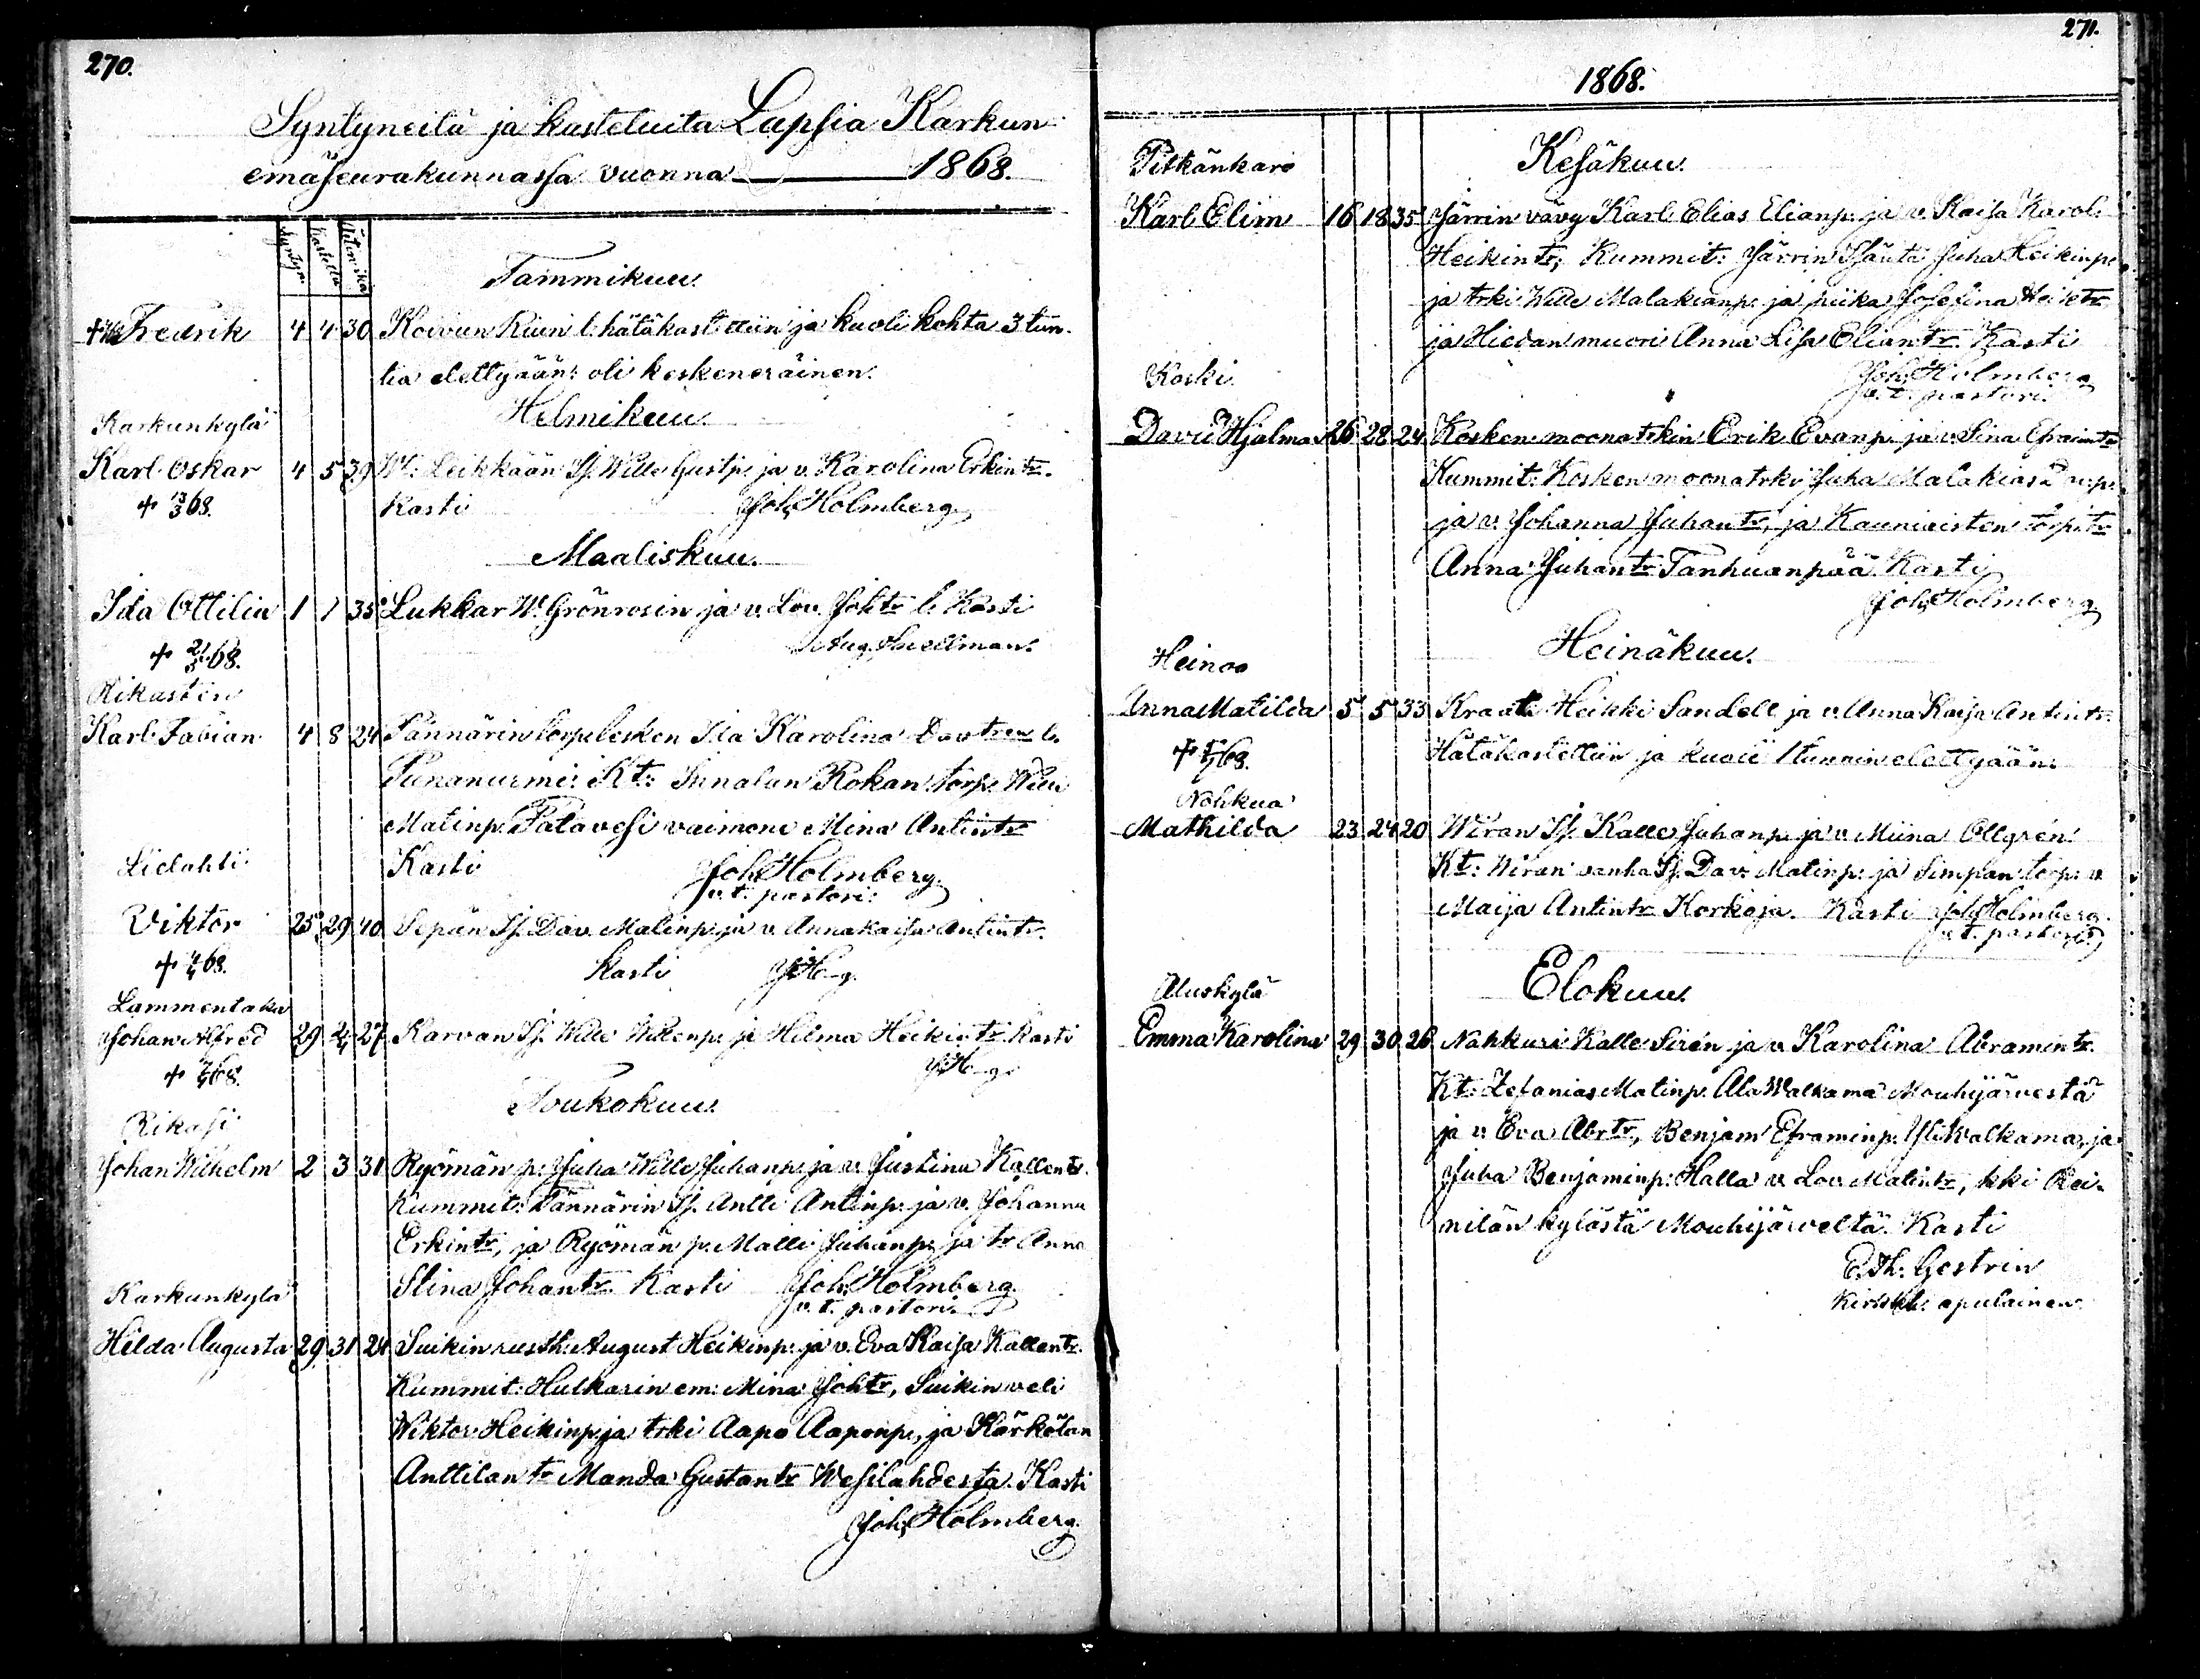 270.
Syntyneitä ja kasteluita Lapsia Karkun
emäseurakunnassa vuonna 1868.
Syntyn. Kastettu Äitin ikä
Tammikuu.
Fredrik 4 4 30 Koivun Riien l. hätäkastettiin ja kuoli kohta 3 tun-
tia elettyään: oli keskeneräinen.
Helmikuu.
Karkunkylä
Karl Oskar 4 5 39 Wt: Leikkään Ij. Wille Gustp. ja v. Karolina Erkintr.
+ 13/3 68. Kasti Joh. Holmberg.
Maaliskuu.
Ida Ottilia 1 1 35 Lukkar W. Grönrosin ja v. Lov. Johtr l. Kasti
+ 21/3 68. Aug. Snellman.
Rikasten
Karl Fabian 4 8 24 Pännärin torp. lesken Ida Karolina Davtren l.
Punanurmi: Kt: Innalan Rokan torp. Wilii
Matinp. Patavesi vaimone Mina Antintr
Kasti Joh. Holmberg.
v. t. pastori.
Lielahti
Viktor 25 29 40 Sepän Ij. Dav. Matinp. ja v. Annakaisa Antintr.
+ 4/4 68. Kasti J. H-g.
Lammentaka
Johan Alfred 29 2/4 27 Karvan Ij. Wille Willenp. ja Hilma Heikintr. Kasti
+ 7/4 68. J. H-g.
Toukokuu.
Rikasi
Johan Wilhelm 2 3 31 Ryömän p. Juha Wille Juhanp. ja v. Justina Kallentr.
Kummit: Pännärin Ij. Antti Antinp. ja v. Johanna
Erkintr, ja Ryömän p. Malli Juhanp. ja tr Anna
Stina Johantr. Kasti Joh. Holmberg.
v. t. pastori.
Karkunkylä
Hilda Augusta 29 31 24 Suikin rusth. August Heikinp. ja v. Eva Kaisa Kallentr.
Kummit: Hulkarin em: Mina Johtr, Suikin veli
Wiktor Heikinp. ja trki Aapo Aaponp., ja Kärkölän
Anttilan tr Manda Gustantr Wesilahdesta. Kasti
Joh. Holmberg.
271.
1868.
Kesäkuu.
Pitkänkaro
Karl Elim 16 18 35 Järrin vävy Karl Elias Elianp. ja v. Kaisa Karol.
Heikintr, Kummit: Järrin Isäntä Juha Heikinp.
ja trki Wille Malakianp. ja piika Josefina Heiktr
ja Hiedan muori Anna Lisa Eliantr. Kasti
Joh. Holmberg
v. t. pastori.
Koski.
David Hjalmar 26 28 24 Kosken moonatrkin Erik Evanp. ja v. Sina Efraimtr
Kummit: Kosken moonatrki Juha Malakias
ja v. Johanna Juhantr, ja Kauniaisten torp. tr
Anna Juhantr Tanhuanpää. Kasti
Joh. Holmberg
Heinäkuu.
Heinoo
Anna Matilda 5 5 33 Kraat. Heikki Sandell ja v. Anna Kaisa Antintr.
+ 5/7 68. Hätäkastettiin ja kuoli 1 tunnin elettyään.
Nohkua
Mathilda 23 24 20 Wiran Ij. Kalle Juhanp. ja v. Miina Ollgrén.
Kt: Wiran vanha Ij. Dav. Matinp. ja Simplan torp. v.
Maija Antintr Korkoja. Kasti Joh. Holmberg.
v. t. pastori
Elokuu.
Aluskylä
Emma Karolina 29 30 26 Nahkuri Kalle Sirén ja v. Karolina Abramintr.
Kt: Zefanias Matinp. Ala Walkama Mouhijärvestä
ja v. Eva Abrtr, Benjam Eframinp. Yli Walkama, ja
Juha Benjaminp. Halla v. Lov. Matintr, kki Rei-
nilän kylästä Mouhijärveltä. Kasti
E. Th. Gestrin
Kirkkh: apulainen